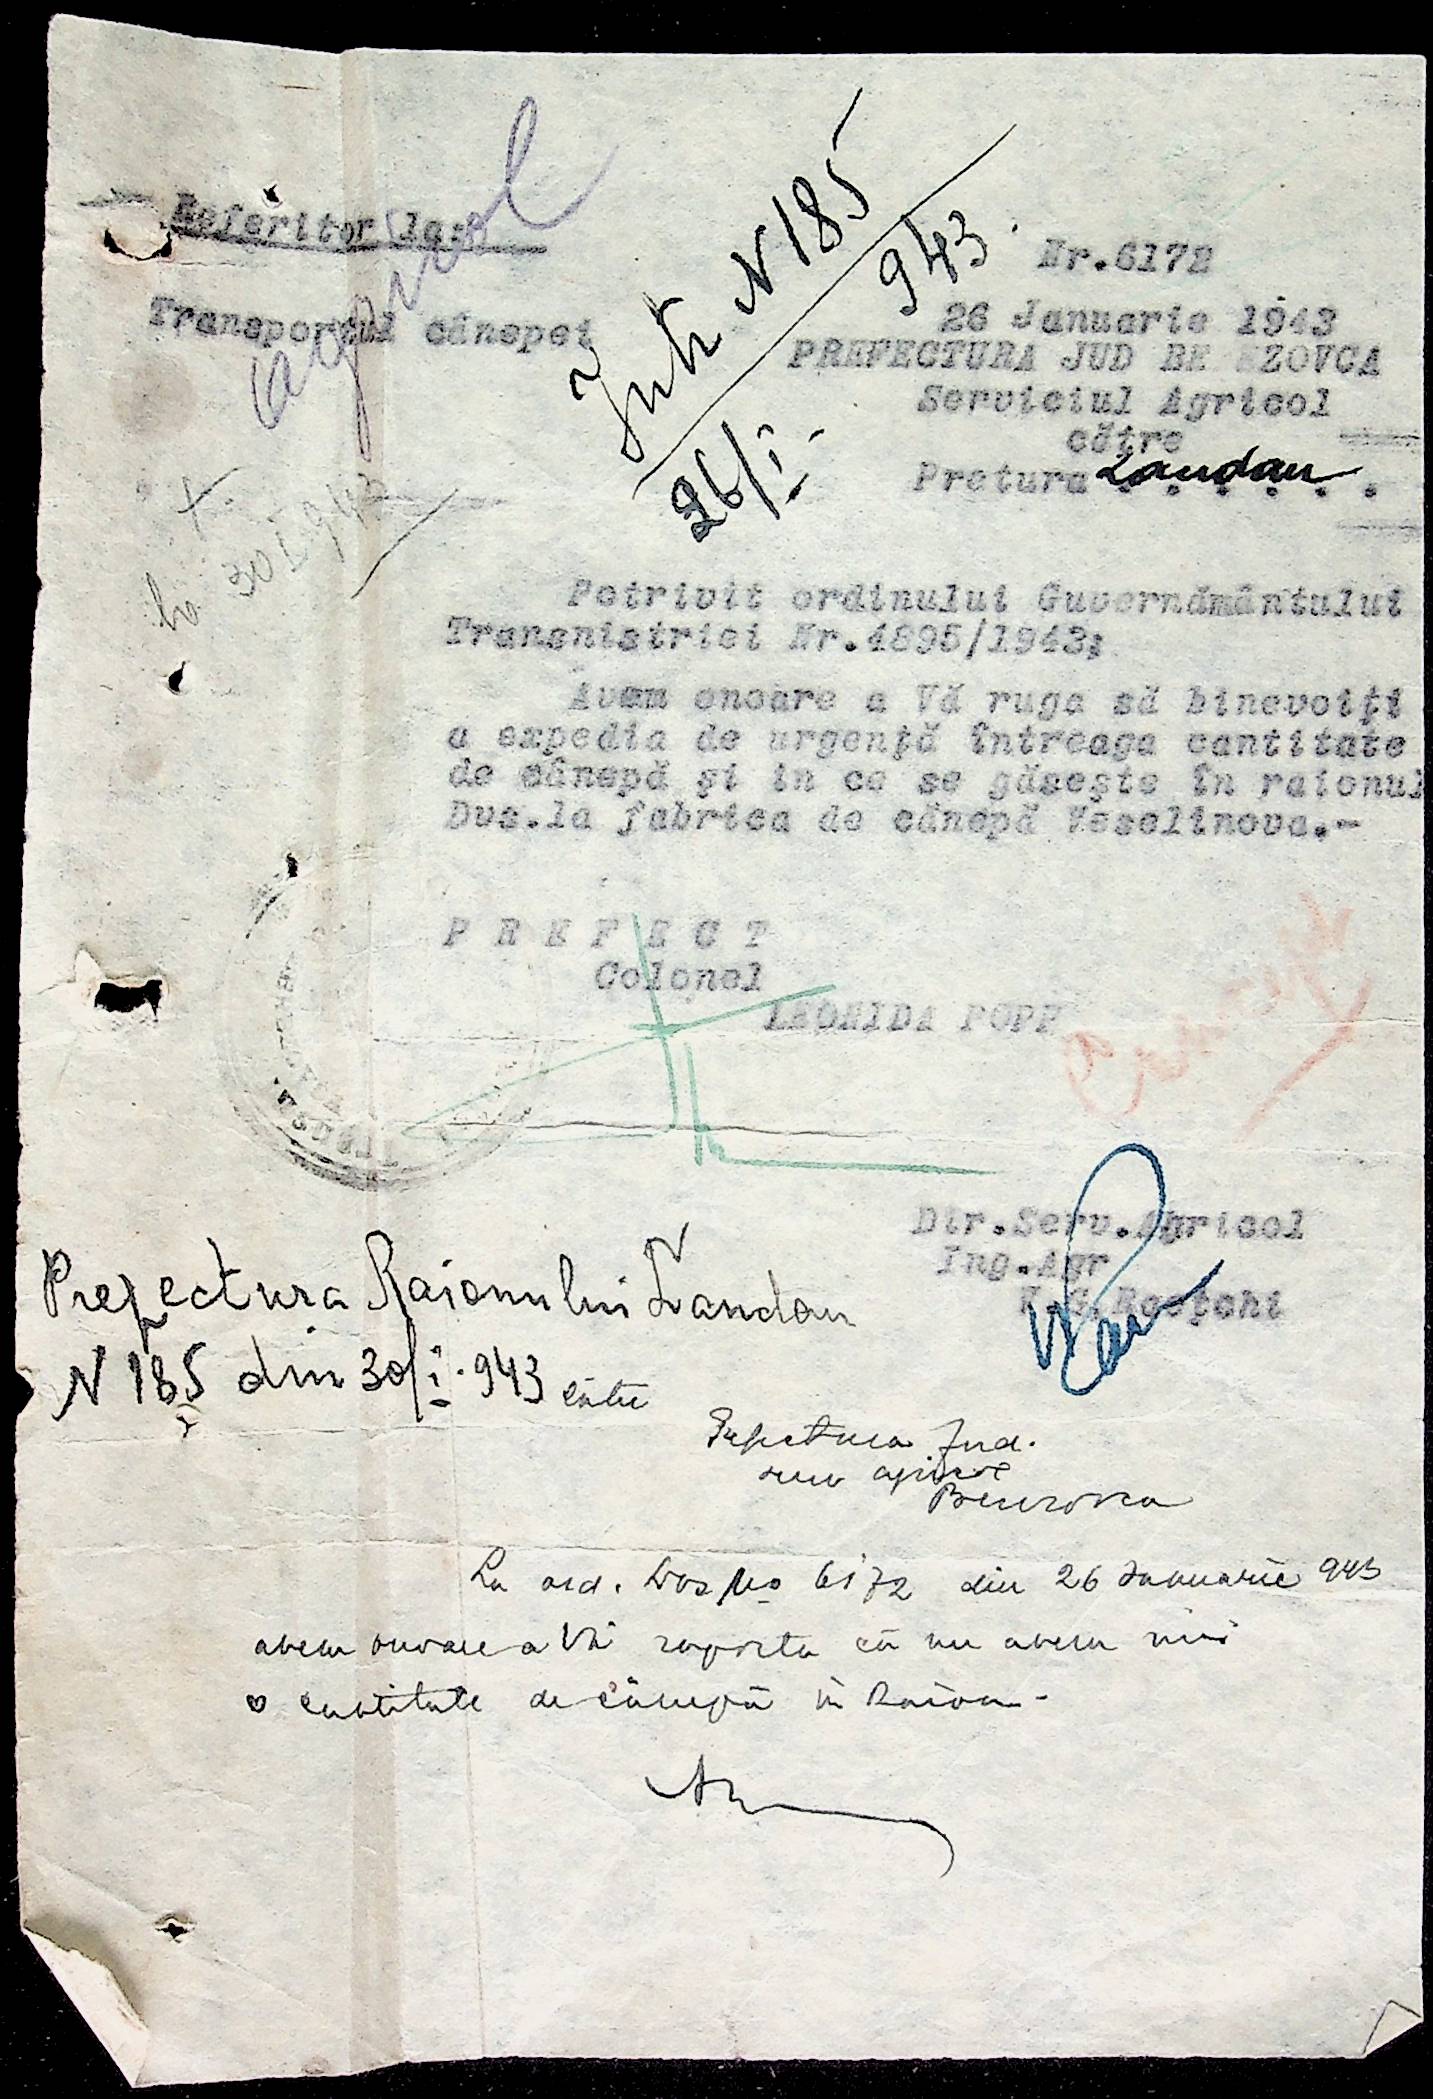 Referitor la:
Transportul cânepei
agricol
Intr N 185
943
26/I.
30 I 943
Nr.6172
26 Januarie 1943
PREFECTURA JUD BE EZOVCA
Serviciul Agricol
către
Pretura Landau
Potrivit ordinului Guvernământului
Transnistriei Nr.4895/1943;
Avem onoare a Vă ruga să binevoiţi
a expedia de urgenţă întreaga cantitate
de cânepă şi in ce se găseşte în raionul
Dvs.la fabrica de cânepă Veselinova.-
P R E F E C T
Colonel
LEONIDA POPP
Dir.Serv.Agricol
Ing.Agr
Prefectura Raionului Landau
N 185 din 30/I.943 către
Prefectura Jud.
serv agricol
Berezovca
La ord. Dvs No 6172 din 26 Januarie 943
avem onoare a Vă raporta că nu avem nici
o cantitate de cânepă în Raion.-